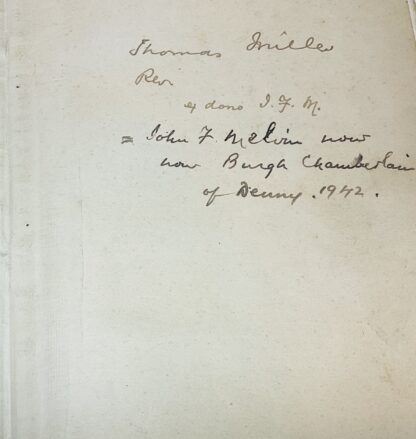 Thomas Miller
ex dono J. F. M.
= John F. Melvin now
now Burgh Chamberlain
of Denny. 1942.